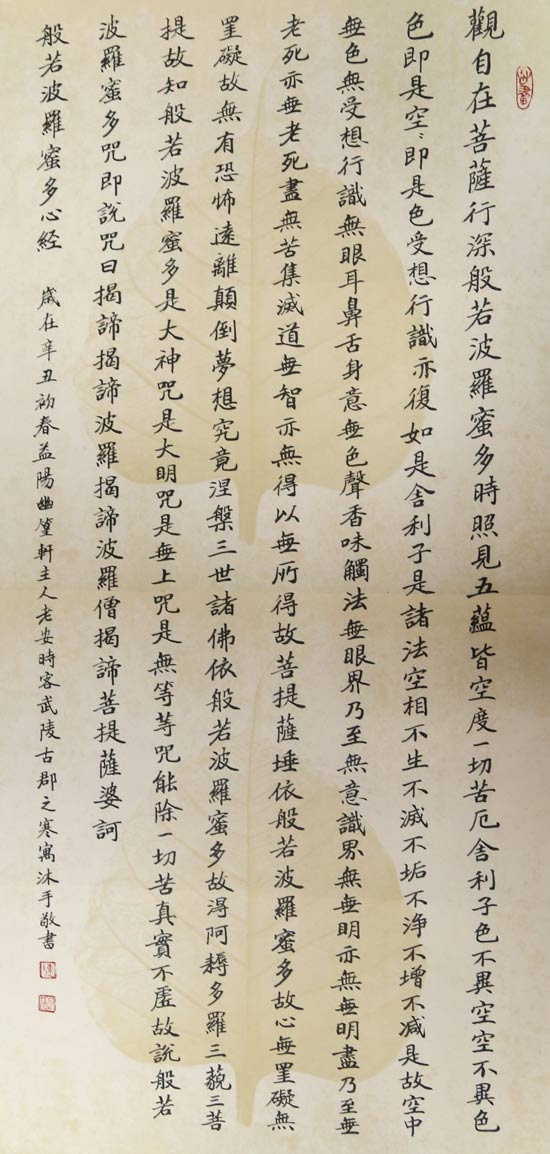 觀自在菩薩行深般若波羅蜜多時照見五蘊皆空度一切苦厄舍利子色不異空空不異色
色即是空〻即是色受想行識亦復如是舍利子是諸法空相不生不滅不垢不淨不增不減是故空中
無色無受想行識無眼耳鼻舌身意無色聲香味觸法無眼界乃至無意識界無無明亦無無明盡乃至無
老死亦無老死盡無苦集滅道無智亦無得以無所得故菩提薩埵依般若波羅蜜多故心無罣礙無
罣礙故無有恐怖遠離顛倒夢想究竟涅槃三世諸佛依般若波羅蜜多故得阿耨多羅三藐三菩
提故知般若波羅蜜多是大神咒是大明咒是無上咒是無等等咒能除一切苦真實不虛故說般若
波羅蜜多咒即說咒曰揭諦揭諦波羅揭諦波羅僧揭諦菩提薩婆訶
般若波羅蜜多心経 歲在辛丑初春益陽幽篁軒主人老安時客武陵古郡之寒寓沐手敬書